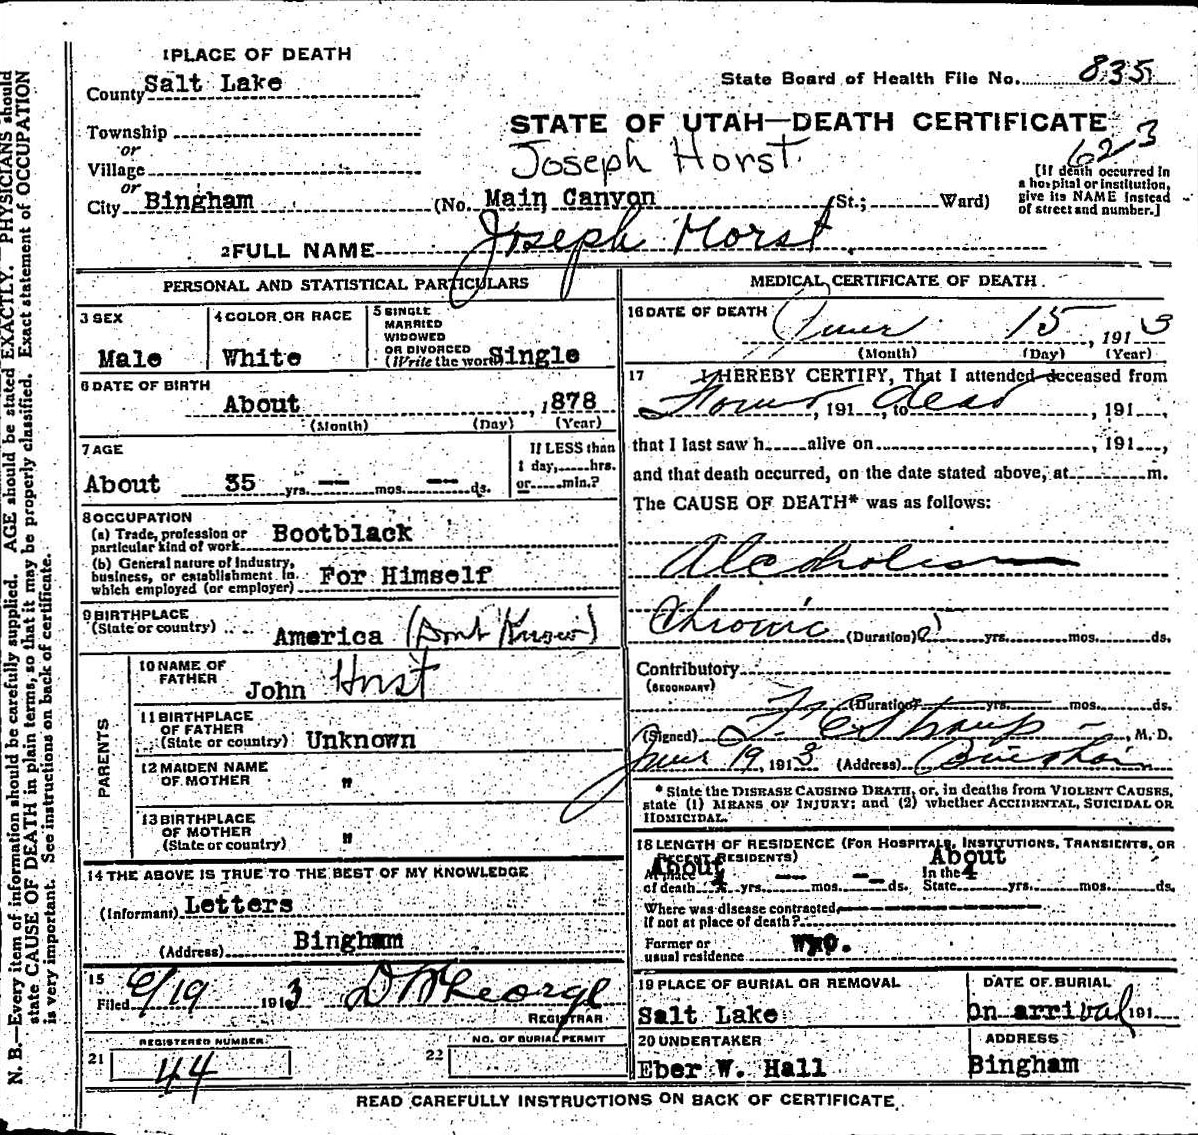 1 PLACE OF DEATH
County Salt Lake
State Board of Health File No. 835
Township
or
Village
or
City Bingham
STATE OF UTAH—DEATH CERTIFICATE
Joseph Horst.
623
(No. Main Canyon St.; Ward)
[If death occurred in
a hospital or institution,
give its NAME instead
of street and number.]
2 FULL NAME Joseph Horst
PERSONAL AND STATISTICAL PARTICULARS
3 SEX
Male
4 COLOR OR RACE
White
5 SINGLE
MARRIED
WIDOWED
OR DIVORCED
(Write the word) Single
6 DATE OF BIRTH
About , 1878
(Month) (Day) (Year)
7 AGE
About 35 yrs. — mos. — ds.
If LESS than
1 day, hrs.
or min.?
8 OCCUPATION
(a) Trade, profession or
particular kind of work Bootblack
(b) General nature of Industry,
business, or establishment in
which employed (or employer) For Himself
9 BIRTHPLACE
(State or country) America (Dont Know)
PARENTS
10 NAME OF
FATHER John Horst
11 BIRTHPLACE
OF FATHER
(State or country) Unknown
12 MAIDEN NAME
OF MOTHER "
13 BIRTHPLACE
OF MOTHER
(State or country) "
14 THE ABOVE IS TRUE TO THE BEST OF MY KNOWLEDGE
(Informant) Letters
(Address) Bingham
15
Filed 6/19 1913
REGISTRAR
REGISTERED NUMBER.
21 44
NO. OF BURIAL PERMIT
22
MEDICAL CERTIFICATE OF DEATH
16 DATE OF DEATH
June 15, 1913
(Month) (Day) (Year)
17 I HEREBY CERTIFY, That I attended deceased from
Found, 191 , to dead , 191 ,
that I last saw h alive on , 191 ,
and that death occurred, on the date stated above, at m.
The CAUSE OF DEATH* was as follows:
Alcoholism
Chronic (Duration) yrs. mos. ds.
Contributory
(SECONDARY)
(Duration) yrs. mos. ds.
(Signed) , M. D.
June 19, 1913 (Address) Bingham
* State the DISEASE CAUSING DEATH, or, in deaths from VIOLENT CAUSES,
state (1) MEANS OF INJURY; and (2) whether ACCIDENTAL, SUICIDAL OR
HOMICIDAL.
18 LENGTH OF RESIDENCE (FOR HOSPITALS, INSTITUTIONS, TRANSIENTS, OR
RECENT RESIDENTS)
About About
At place In the
of death yrs. — mos. — ds. State yrs. mos. ds.
Where was disease contracted,
if not at place of death?
Former or
usual residence Wyo.
19 PLACE OF BURIAL OR REMOVAL
Salt Lake
DATE OF BURIAL
On arrival 191
20 UNDERTAKER
Eber W. Hall
ADDRESS
Bingham
READ CAREFULLY INSTRUCTIONS ON BACK OF CERTIFICATE.
N. B.—Every item of information should be carefully supplied. AGE should be stated EXACTLY. PHYSICIANS should
state CAUSE OF DEATH in plain terms, so that it may be properly classified. Exact statement of OCCUPATION
is very important. See instructions on back of certificate.